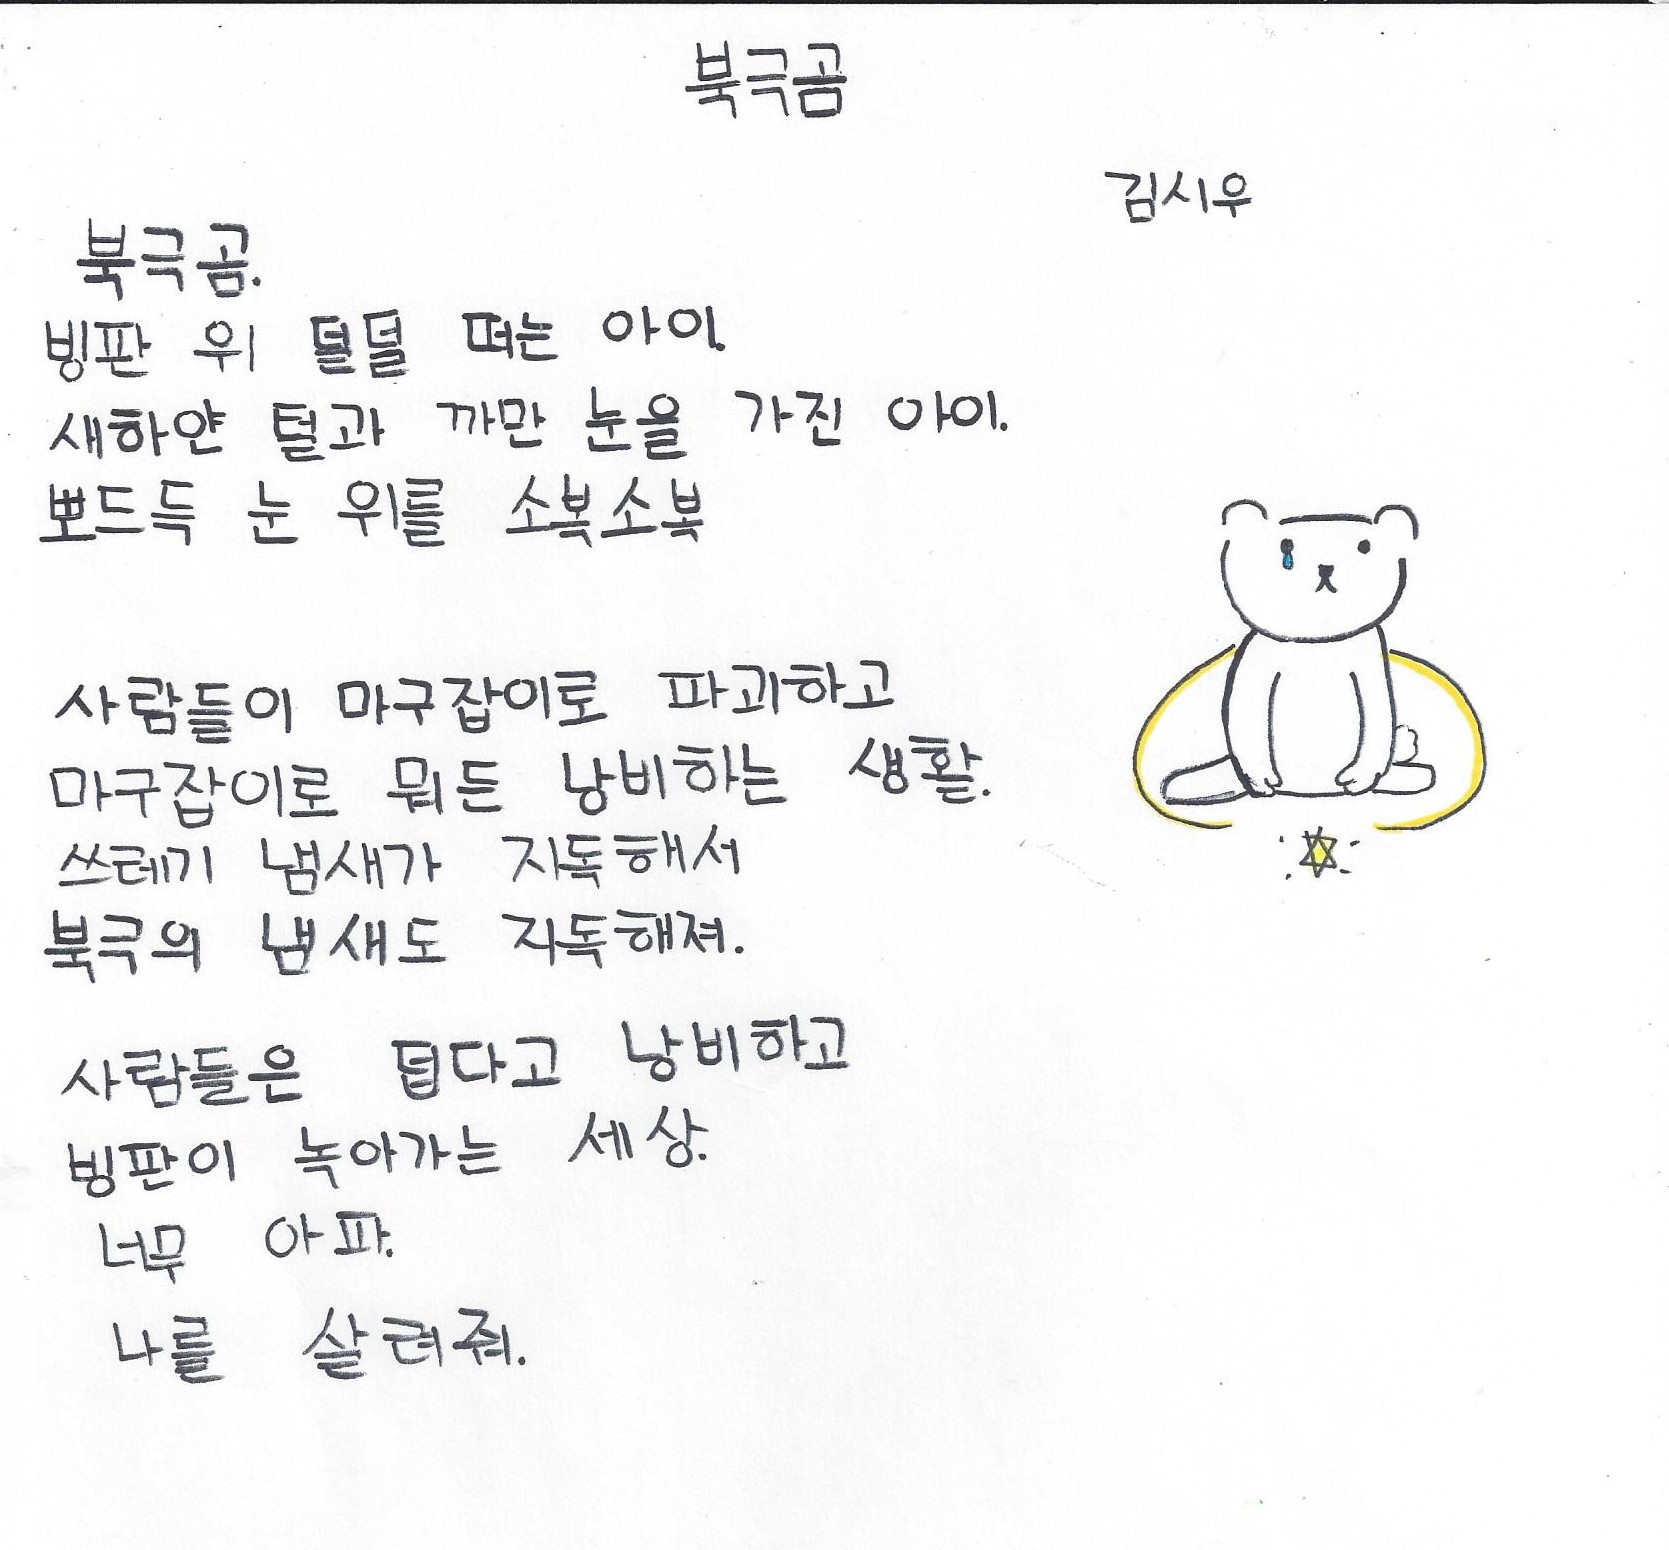 북극곰
김시우
북극곰.
빙판 위 덜덜 떠는 아이.
새하얀 털과 까만 눈을 가진 아이.
뽀드득 눈 위를 소복소복
사람들이 마구잡이로 파괴하고
마구잡이로 뭐든 낭비하는 생활.
쓰테기 냄새가 지독해서
북극의 냄새도 지독해져.
사람들은 덥다고 낭비하고
빙판이 녹아가는 세상.
너무 아파.
나를 살려줘.